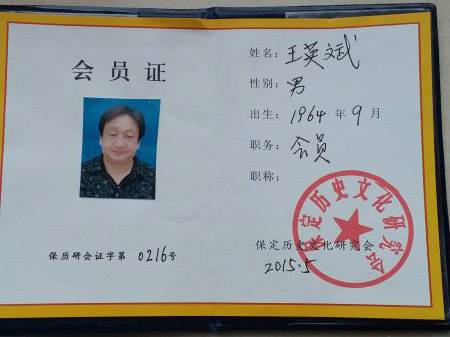 会员证
保历研会证字第0216号
姓名：王英斌
性别：男
出生：1964年9月
职务：会员
职称：
保定历史文化研究会
2015.5
保定历史文化研究会